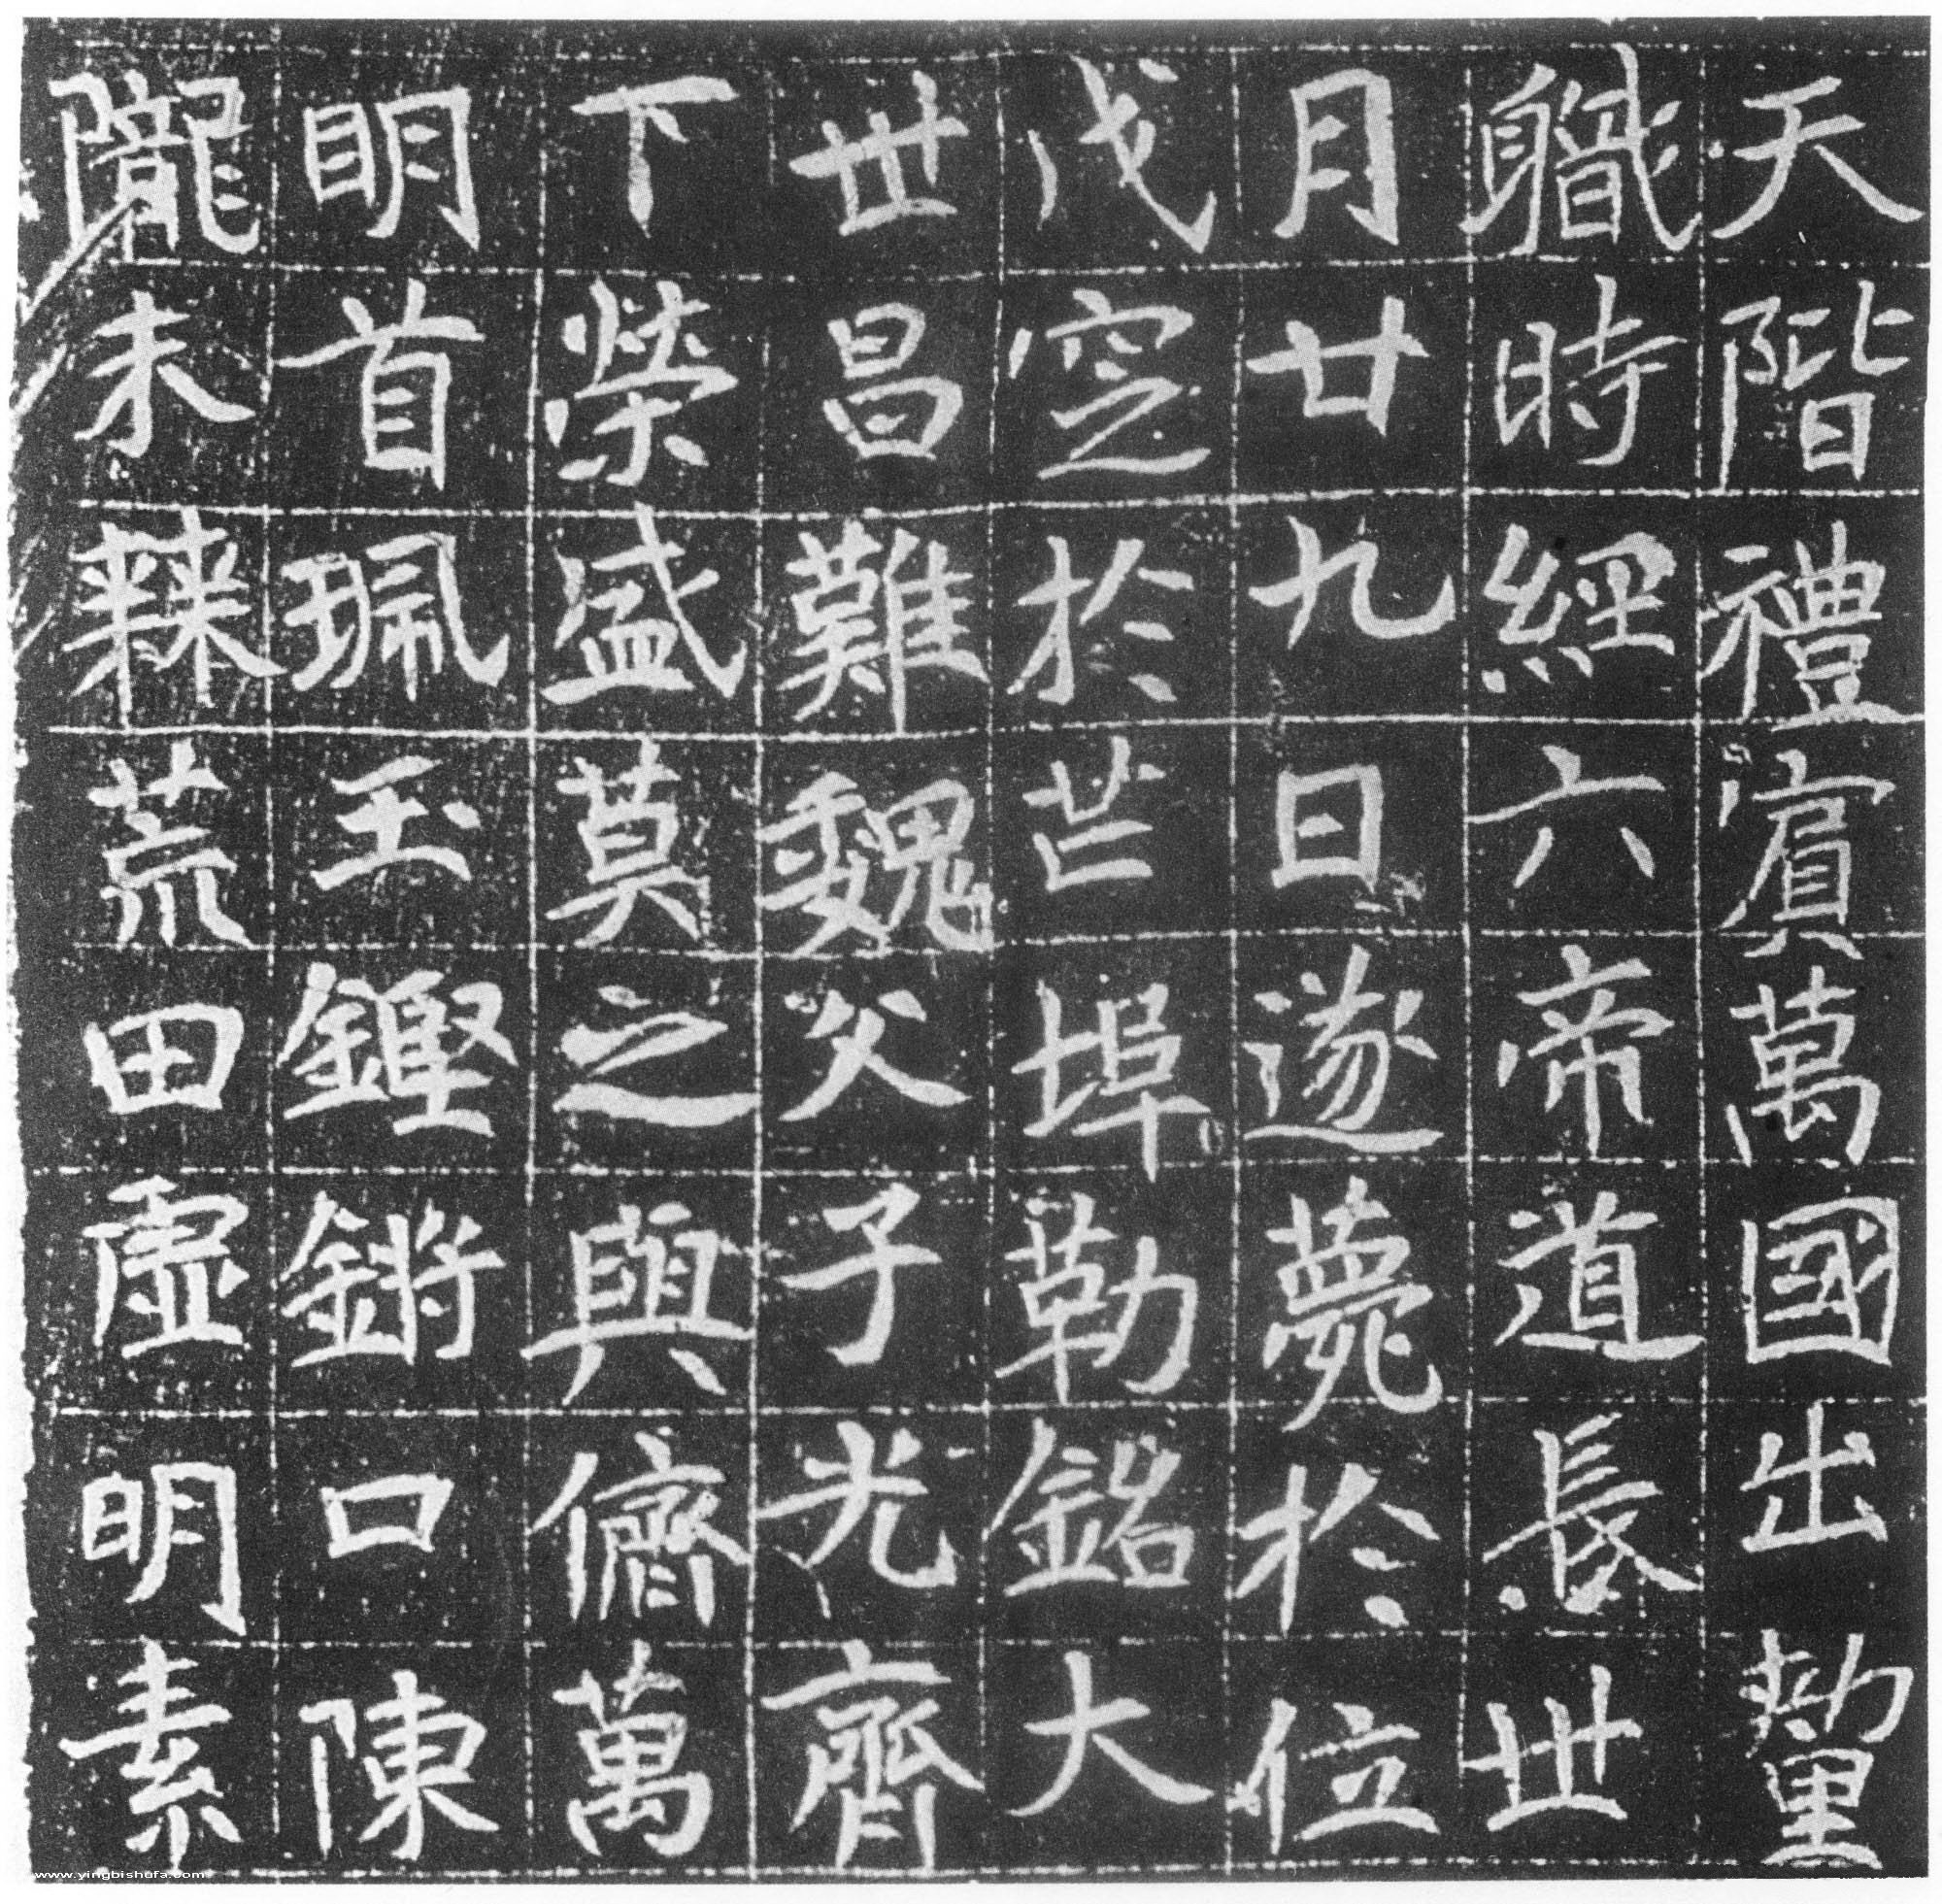 天階禮賓萬國出釐
職時經六帝道長世
月廿九日遂薨於位
戊窆於芒埠勒銘大
世昌難魏父子光齊
下榮盛莫之與儕萬
明首珮玉鏗鏘口陳
隴未棘荒田虛明素
www.yingbishufa.com